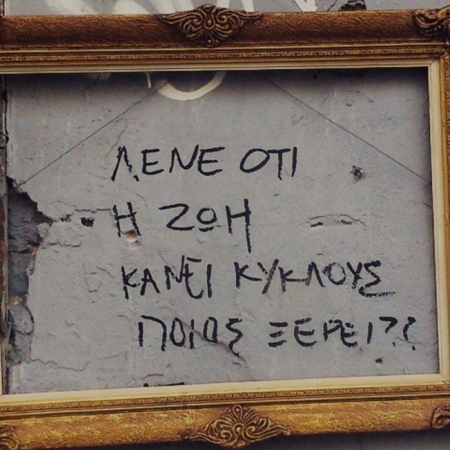 ΛΕΝΕ ΟΤΙ
Η ΖΩΗ
ΚΑΝΕΙ ΚΥΚΛΟΥΣ
ΠΟΙΟΣ ΞΕΡΕΙ??